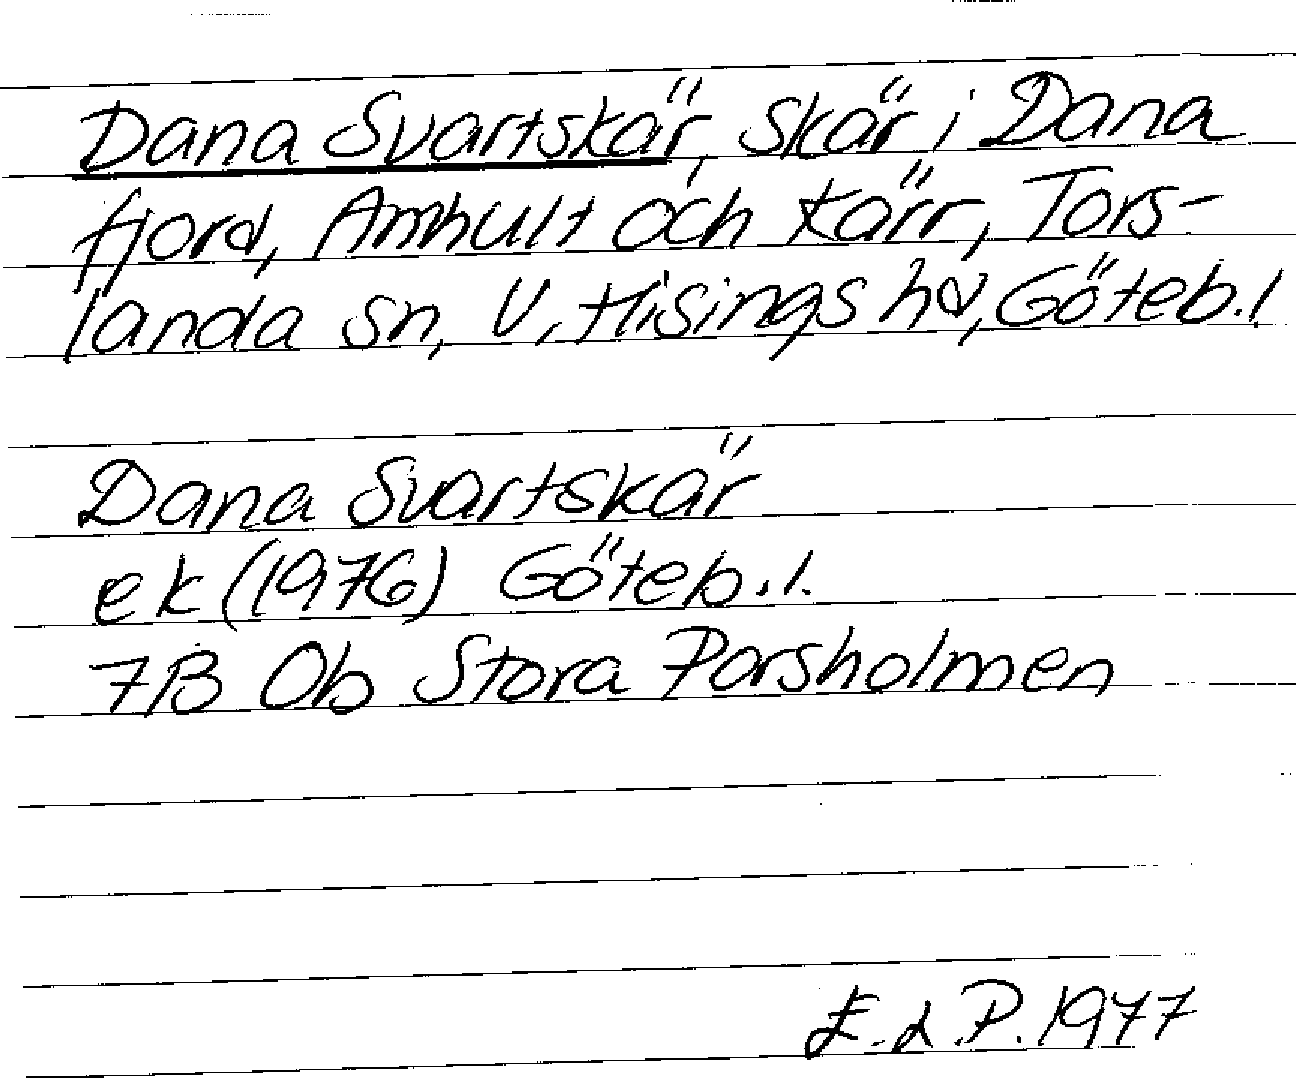 Dana Svartskär, skär i Dana
fjord, Amhult och Kärr, Tors-
landa sn, V. Hisings hd, Göteb.l
Dana Svartskär
ek (1976) Göteb.l.
7B Ob Stora Porsholmen
E.d.P. 1977